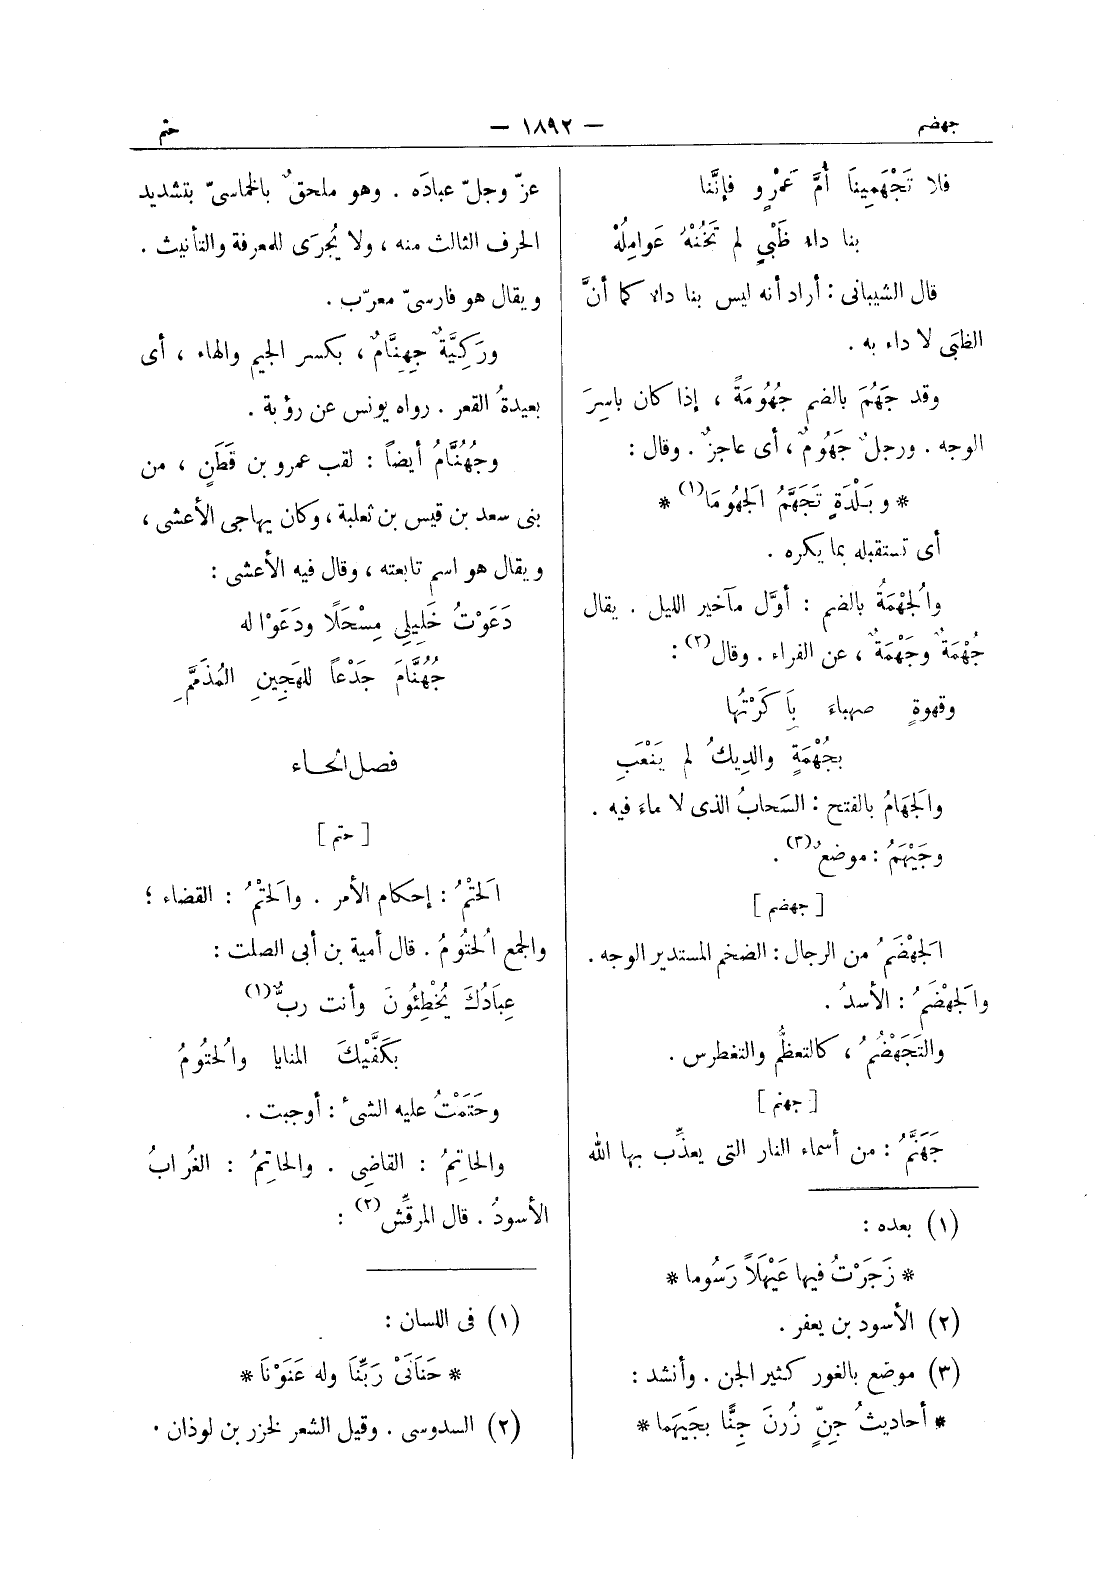 جهضم — ١٨٩٢ — حتم
فلا تَجْهَمِينَا أُمَّ عَمْرٍو فإنَّنا
بنا داء ظَبْىٍ لم تَخُنْهُ عَوامِلُهْ
قال الشيبانى : أراد أنه ليس بنا داء كما أنَّ
الظبَى لا داء به .
وقد جَهُمَ بالضم جُهُومَةً ، إذا كان باسِرَ
الوجه . ورجلٌ جَهُومٌ ، أى عاجزٌ . وقال :
* وبَلْدَةٍ تَجَهَّمُ الجَهُومَا (١) *
أى تستقبله بما يكره .
والُجْهْمَةُ بالضم : أوَّل مآخير الليل . يقال
جُهْمَةٌ وجَهْمَةٌ ، عن الفراء . وقال (٢) :
وقهوةٍ صهباءَ بَاكَرْتُها
بجُهْمَةٍ والدِيكُ لم يَنْعَبِ
والَجهَامُ بالفتح : السَحابُ الذى لا ماءَ فيه .
وجَيْهَمُ : موضعٌ (٣) .
[ جهضم ]
الَجهْضَمُ من الرجال : الضخم المستدير الوجه .
والَجهْضَمُ : الأسدُ .
والتَجَهْضُمُ ، كالتعظُّم والتغطرس .
[ جهنم ]
جَهَنَّمُ : من أسماء النار التى يعذِّب بها الله
(١) بعده :
* زَجَرْتُ فيها عَيْهَلاً رَسُوما *
(٢) الأسود بن يعفر .
(٣) موضع بالغور كثير الجن . وأنشد :
* أحاديثُ جنٍّ زُرنَ جِنًّا بجَيهَما *
عزّ وجلّ عبادَه . وهو ملحقٌ بالخماسىّ بتشديد
الحرف الثالث منه ، ولا يُجرَى للمعرفة والتأنيث .
ويقال هو فارسىّ معرّب .
ورَكِيَّةٌ جِهِنَّامٌ ، بكسر الجيم والهاء ، أى
بعيدةُ القعر . رواه يونس عن رؤبة .
وجُهُنَّامُ أيضاً : لقب عمرو بن قَطَنٍ ، من
بنى سعد بن قيس بن ثعلبة ، وكان يهاجى الأعشى ،
ويقال هو اسم تابعته ، وقال فيه الأعشى :
دَعَوْتُ خَلِيلِي مِسْحَلًا ودَعَوْا له
جُهُنَّامَ جَدْعاً للهَجِينِ المُذَمَّمِ
فصل الحاء
[ حتم ]
الَحتْمُ : إحكام الأمر . والَحتْمُ : القضاء ؛
والجمع الُحتُومُ . قال أمية بن أبى الصلت :
عِبَادُكَ يُخْطِئُونَ وأنت ربٌّ (١)
بَكَفَّيْكَ المنايا والُحتُومُ
وحَتَمْتُ عليه الشىءَ : أوجبت .
والحاتِمُ : القاضِى . والحاتِمُ : الغُرابُ
الأسودُ . قال المرقّش (٢) :
(١) فى اللسان :
* حَنَانَىْ رَبِّنَا وله عَنَوْنَا *
(٢) السدوسى . وقيل الشعر لخزر بن لوذان .